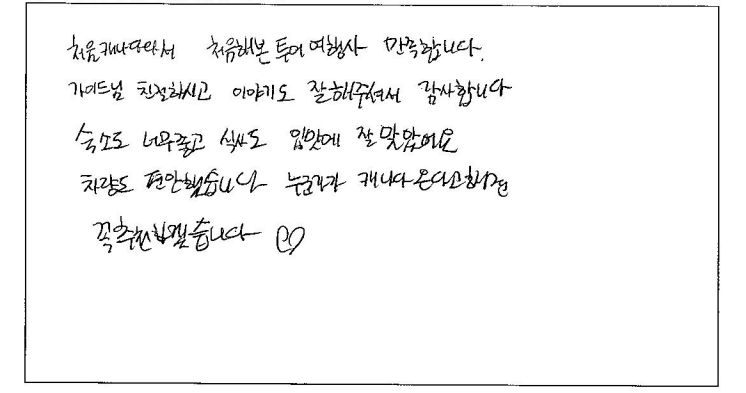 처음 캐나다와서 처음해본 투어 여행사 만족합니다.
가이드님 친절하시고 이야기도 잘해주셔서 감사합니다
숙소도 너무좋고 식사도 입맛에 잘 맞았어요
차량도 편안했습니다 누군가가 캐나다 온다고하면
꼭추천하겠습니다 ♡